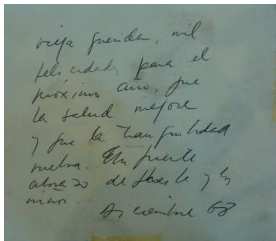 vieja querida, mil
felicidades para el
próximo año, que
la salud mejore
y que la tranquilidad
vuelva. Un fuerte
abrazo de y los
niños.
Diciembre 68